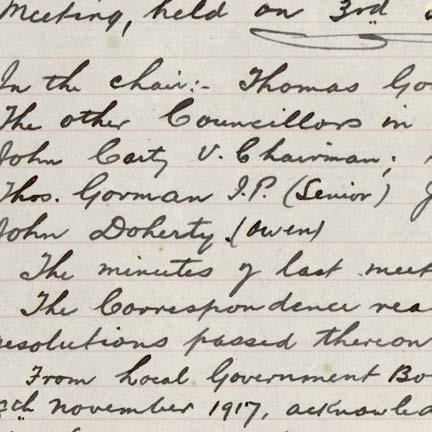 Meeting, held on 3rd
In the chair:- Thomas Go
The other Councillors in
John Carty V. Chairman;
Thos. Gorman J.P. (Senior) J
John Doherty (Owen)
The minutes of last meet
The Correspondence rea
resolutions passed thereon
From Local Government Bo
th November 1917, acknowled